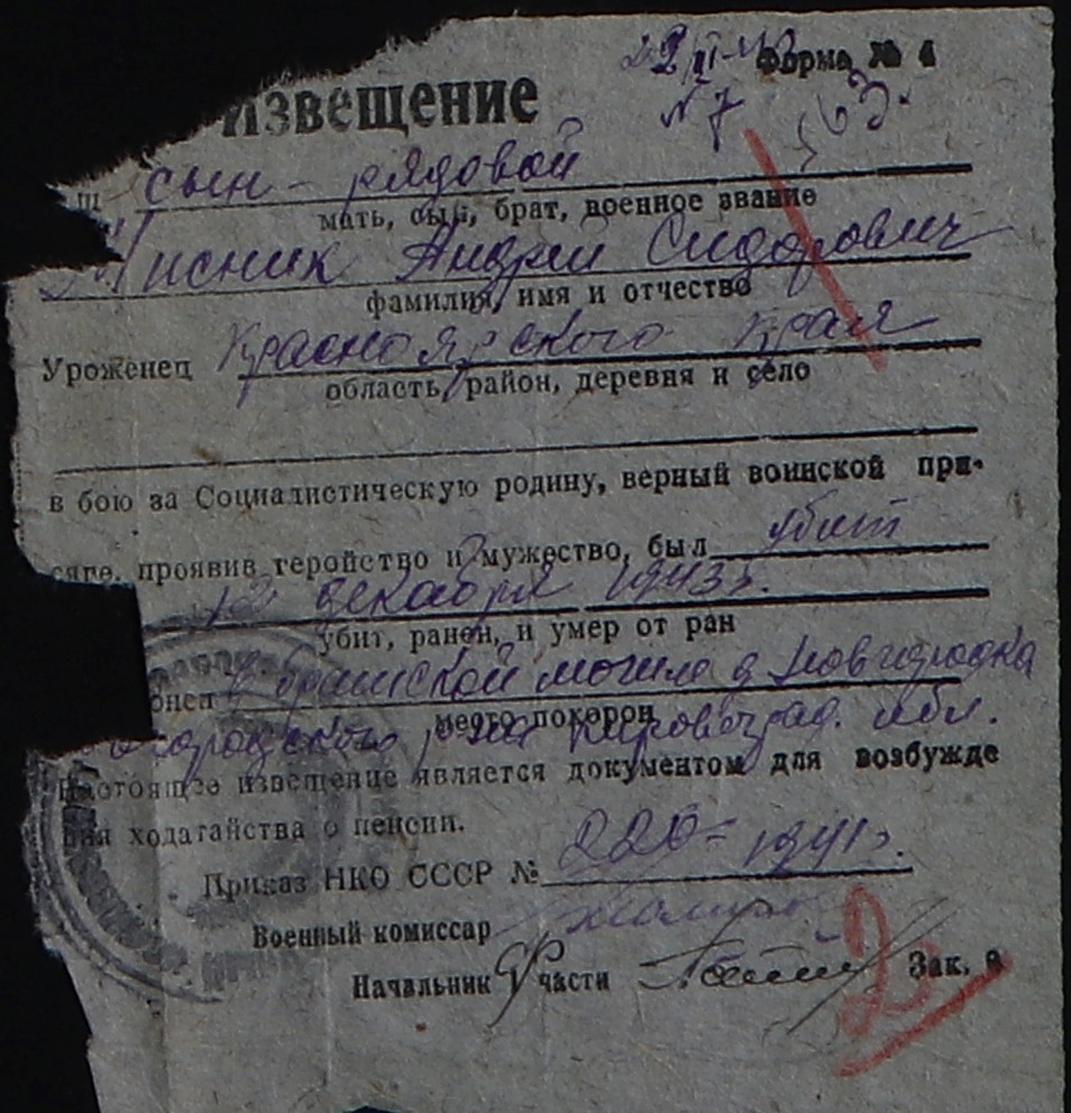 Форма № 4
извещение
сын - рядовой
мать, сын, брат, военное звание
Лисник Андрей Сидорович
фамилия, имя и отчество
Уроженец Красноярского края
область, район, деревня и село
в бою за Социалистическую родину, верный воинской при-
сяге, проявив геройство и мужество, был убит
12 декабря 1943 г.
убит, ранен, и умер от ран
в братской могиле д Новгородка
место похорон
кировоград. обл.
Настоящее извещение является документом для возбужде
ния ходатайства о пенсии.
Приказ НКО СССР № 220 - 1941 г.
Военный комиссар
Начальник 4 части
Зак.
2